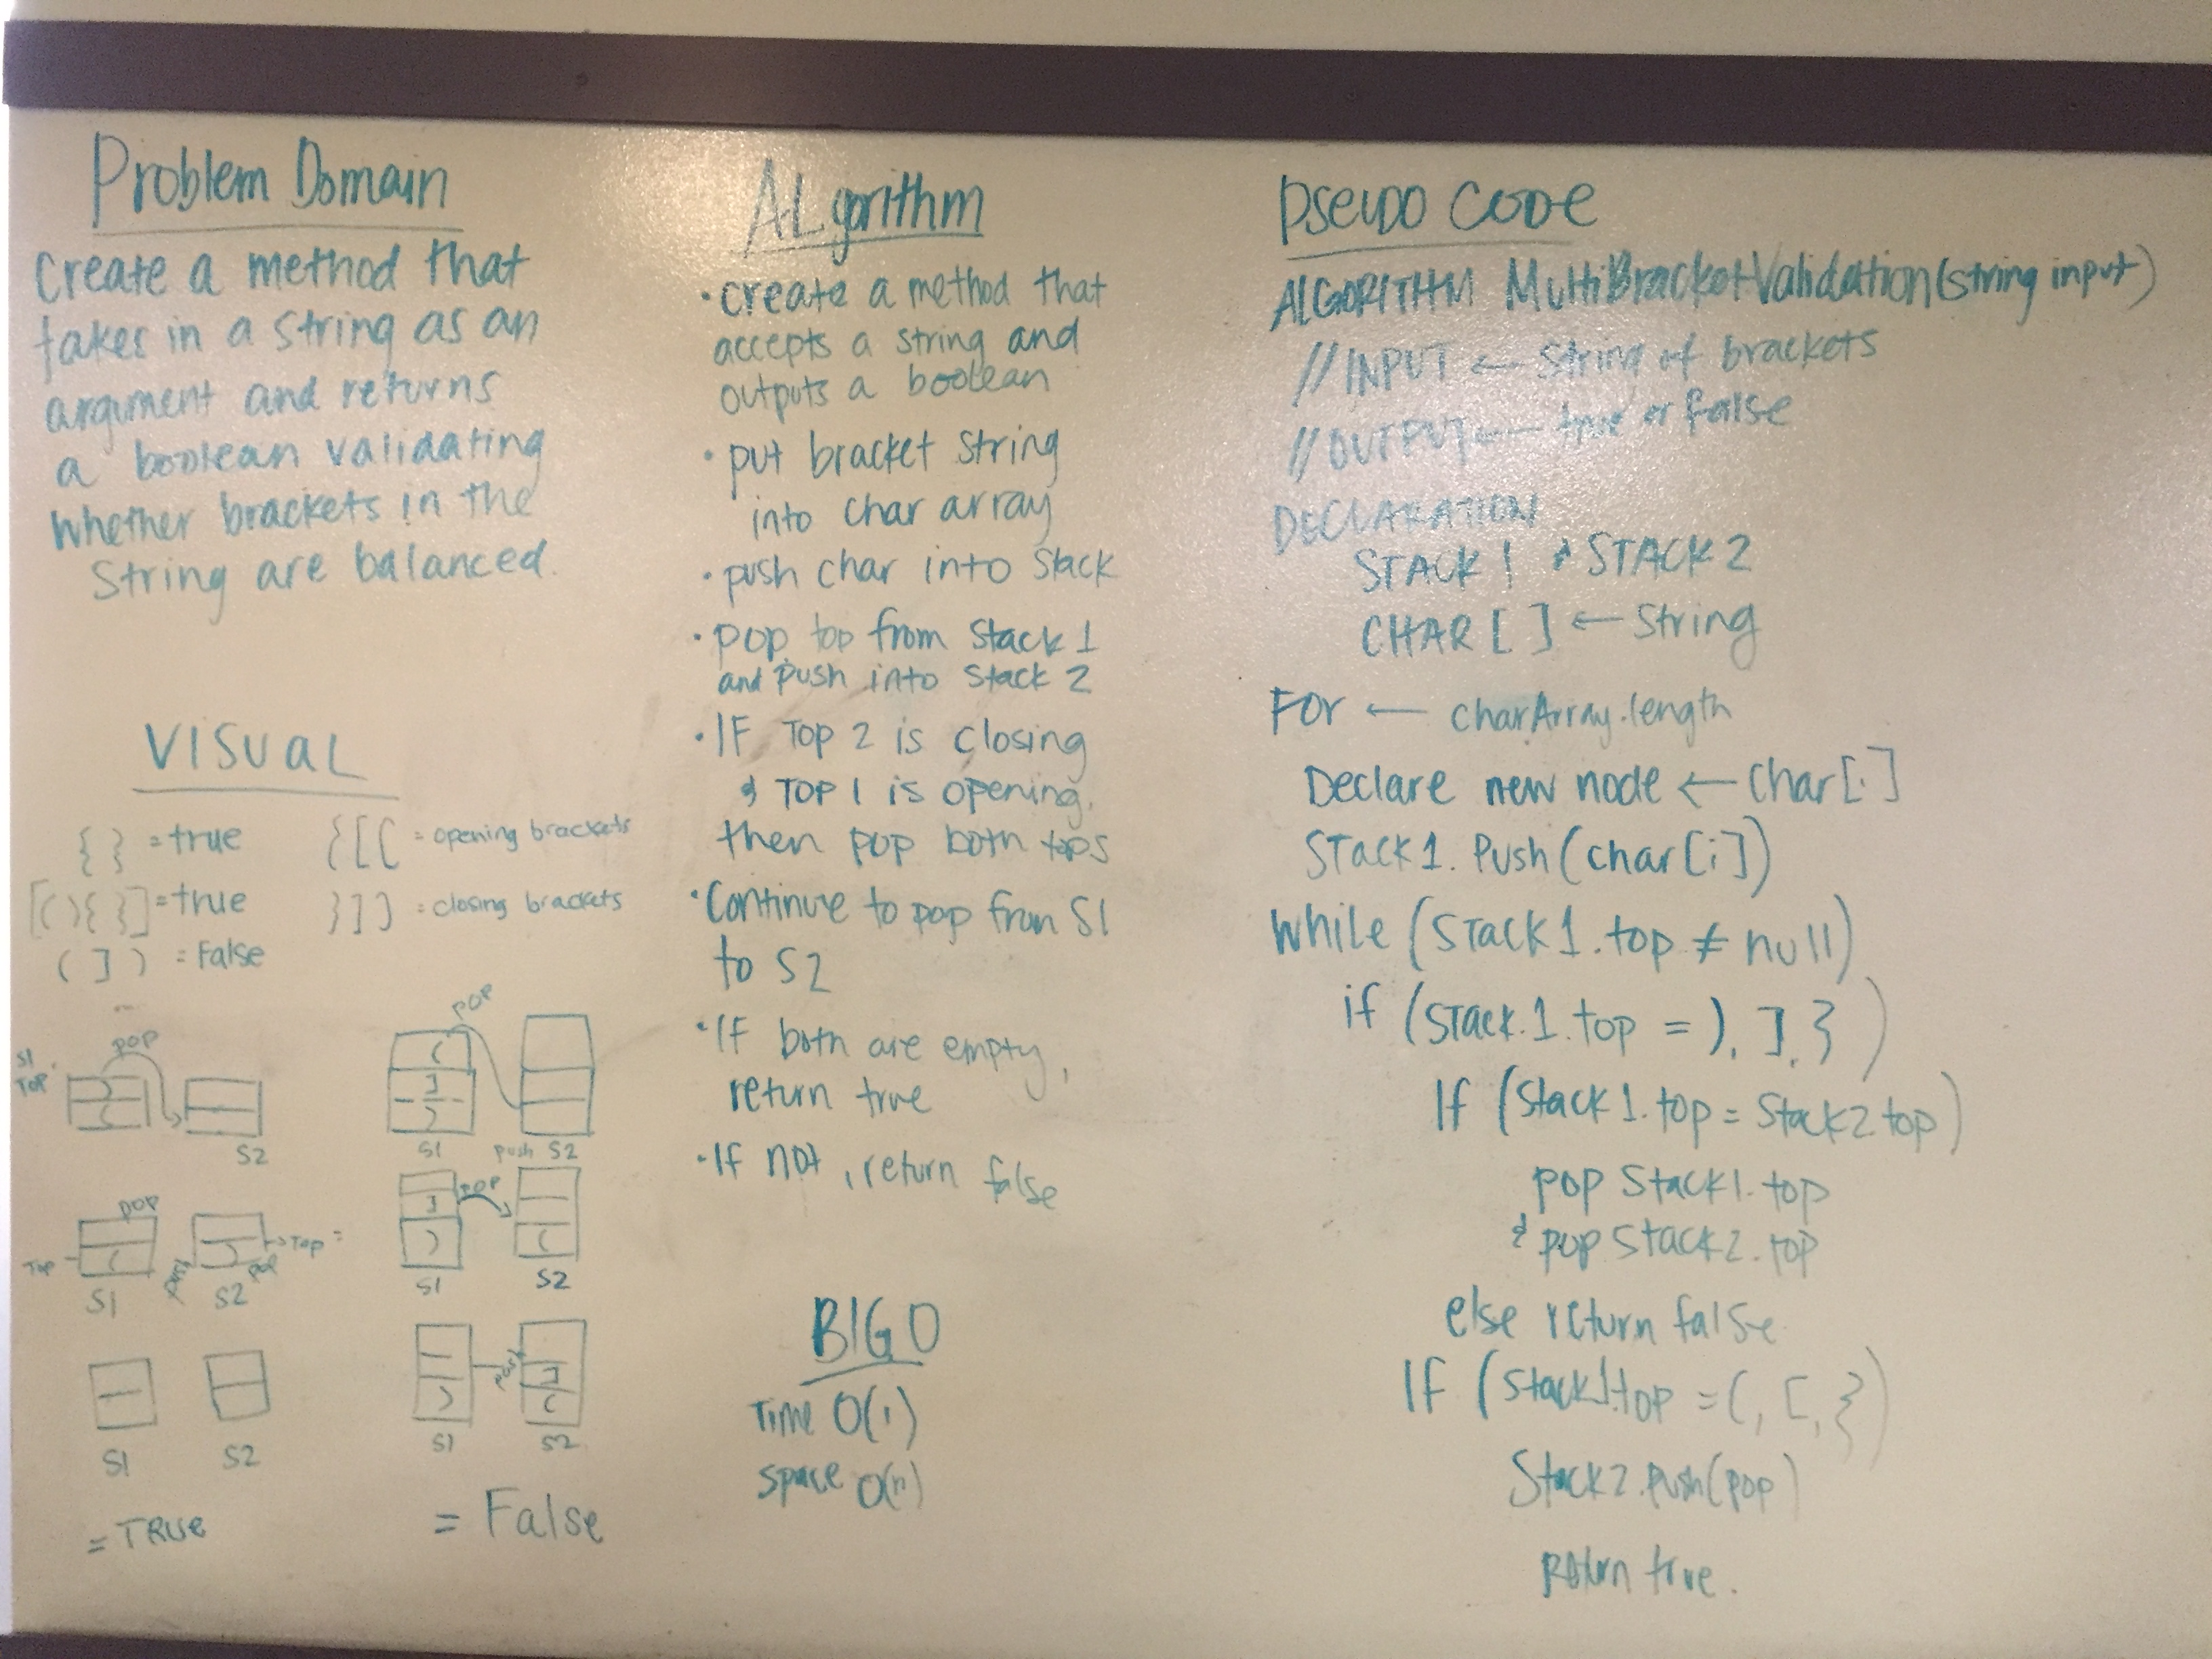 Problem Domain
Create a method that
takes in a string as an
argument and returns
a boolean validating
whether brackets in the
String are balanced.
VISUAL
{ } = true
[(){ }] = true
( ] ) = False
{[( = opening brackets
}]) = closing brackets
S1
TOP
POP
)
(
S2
POP
TOP
(
S1
push
)
Top =
POP
S2
S1
S2
= TRUE
POP
(
]
)
S1
push S2
POP
]
)
S1
(
S2
)
S1
push
]
(
S2
= False
ALgorithm
• create a method that
accepts a string and
outputs a boolean
• put bracket string
into char array
• push char into Stack
• pop top from Stack 1
and push into Stack 2
• IF Top 2 is closing
& TOP 1 is opening,
then pop both tops
• Continue to pop from S1
to S2
• If both are empty,
return true
• If not, return false
BIG O
Time O(1)
Space O(n)
Pseudo Code
ALGORITHM MultiBracketValidation(string input)
// INPUT ← String of brackets
// OUTPUT ← true or false
DECLARATION
STACK 1 & STACK 2
CHAR [ ] ← String
For ← charArray.length
Declare new node ← Char[i]
Stack1.Push(char[i])
while (Stack1.top ≠ null)
if (Stack.1.top = ), ], } )
If (Stack1.top = Stack2.top)
pop Stack1.top
& pop Stack2.top
else return false
If (Stack1.top = (, [, } )
Stack2.Push(pop)
Return true.